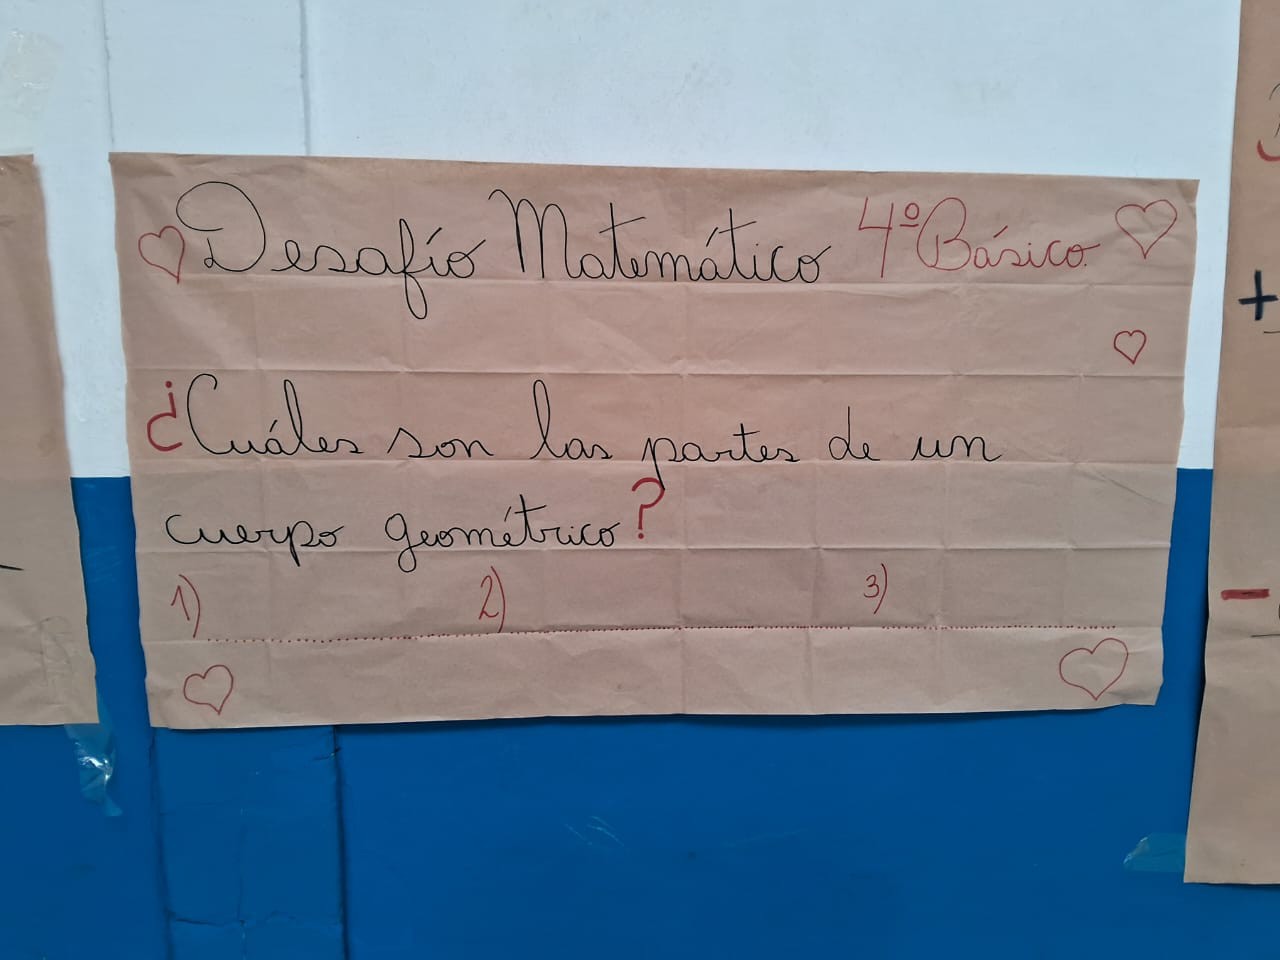 Desafío Matemático 4º Básico.
¿Cuáles son las partes de un
cuerpo geométrico?
1) 2) 3)
+
-